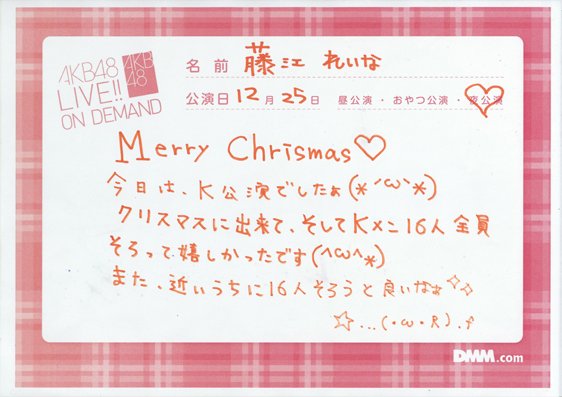 AKB48
LIVE!!
ON DEMAND
AKB
48
名前 藤江 れいな
公演日 12月 25日 昼公演・おやつ公演・夜公演
Merry Chrismas♡
今日は、K公演でしたぁ(*´ω`*)
クリスマスに出来て、そしてKメン16人全員
そろって嬉しかったです(^ω^*)
また、近いうちに16人そろうと良いなぁ✨
☆...(・ω・R).f
DMM.com